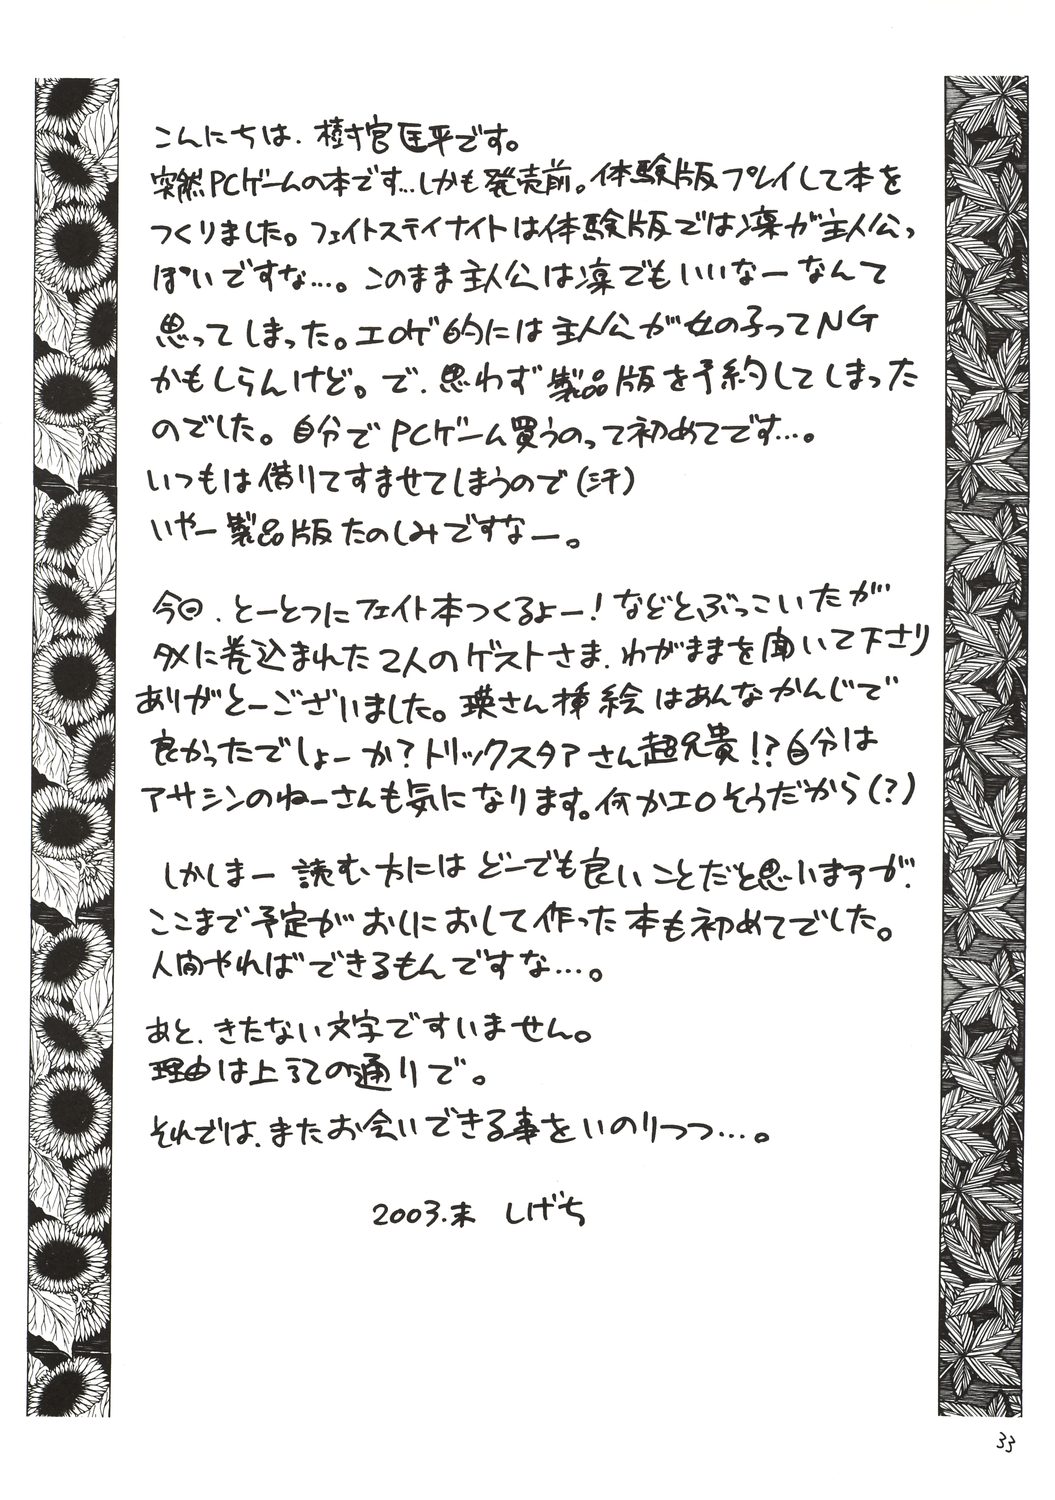 こんにちは、樹官匡平です。
突然PCゲームの本です…しかも発売前。体験版プレイして本を
つくりました。フェイトステイナイトは体験版では凛が主人公っ
ぽいですな…。このまま主人公は凛でもいいなーなんて
思ってしまった。エロゲ的には主人公が女の子ってNG
かもしらんけど。で、思わず製品版を予約してしまった
のでした。自分でPCゲーム買うのって初めてです…。
いつもは借りてすませてしまうので(汗)
いやー製品版たのしみですなー。
今回、とーとつにフェイト本つくるよー!などとぶっこいたが
タメに巻込まれた2人のゲストさま、わがままを聞いて下さり
ありがとーございました。瑛さん挿絵はあんなかんじで
良かったでしょーか?トリックスタアさん超兄貴!?自分は
アサシンのねーさんも気になります。何かエロそうだから(?)
しかしまー読む方にはどーでも良いことだと思いますが、
ここまで予定がおしにおして作った本も初めてでした。
人間やればできるもんですな…。
あと、きたない文字ですいません。
理由は上記の通りで。
それでは、またお会いできる事をいのりつつ…。
2003.末 しげち
33